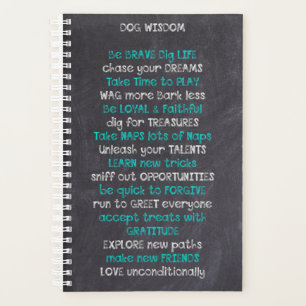 DOG WISDOM
Be BRAVE Dig LIFE
chase your DREAMS
Take Time to PLAY
WAG more Bark less
Be LOYAL & Faithful
dig for TREASURES
Take NAPS lots of Naps
Unleash your TALENTS
LEARN new tricks
sniff out OPPORTUNITIES
be quick to FORGIVE
run to GREET everyone
accept treats with
GRATITUDE
EXPLORE new paths
make new FRIENDS
LOVE unconditionally